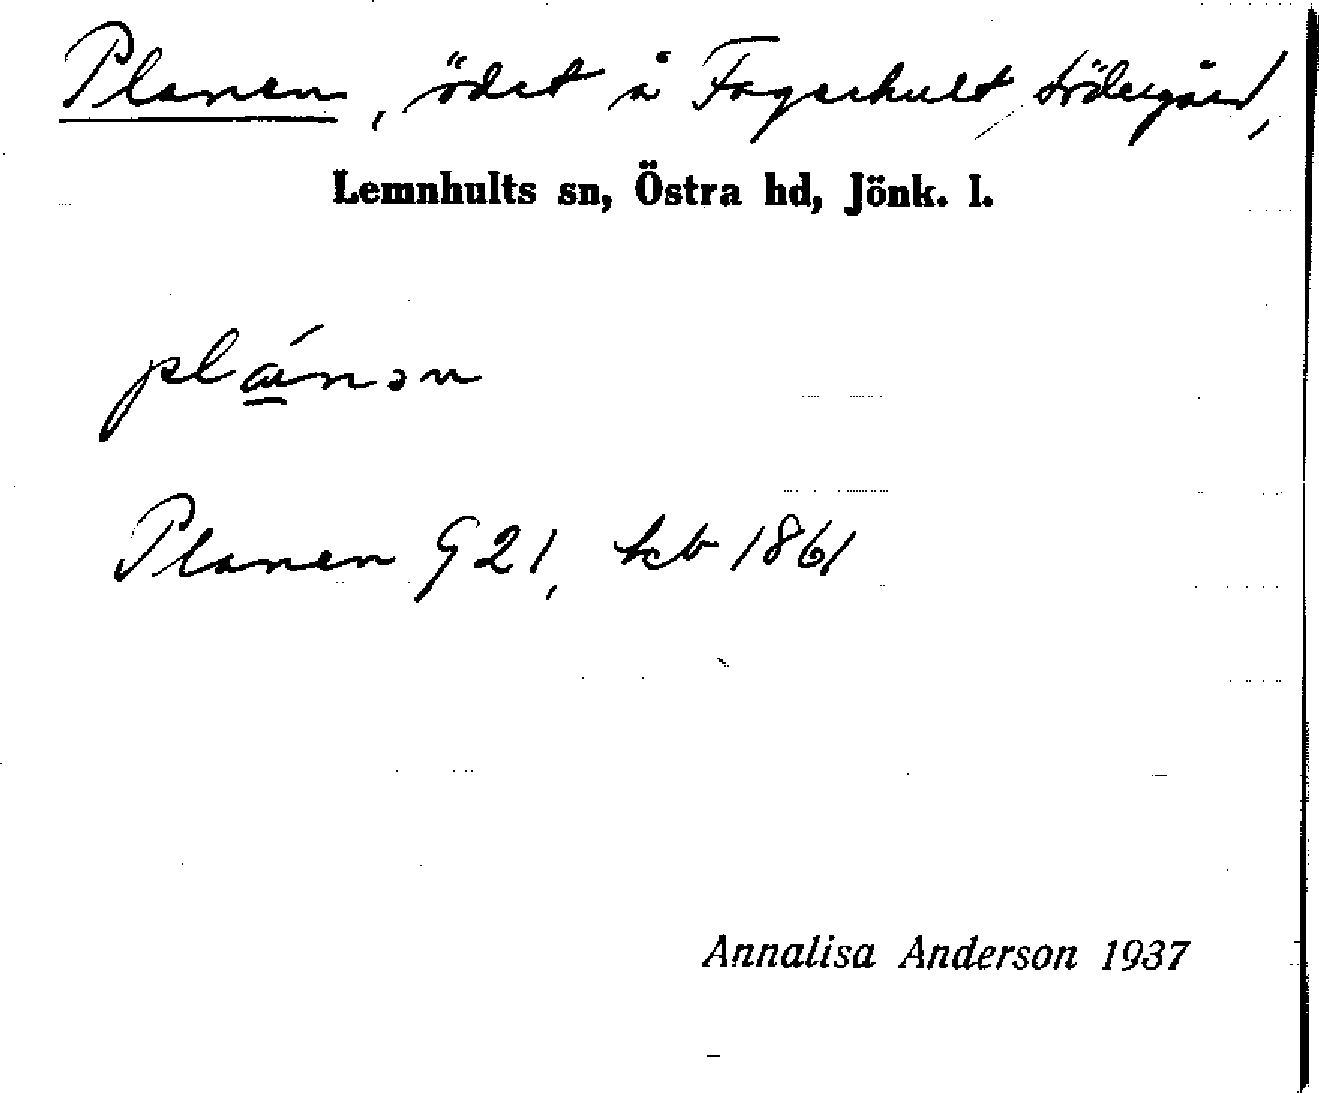 Planen, ödet å Fagerhult, Södergård,
Lemnhults sn, Östra hd, Jönk. l.
plánən
Planen G 21, kb 1861
Annalisa Anderson 1937